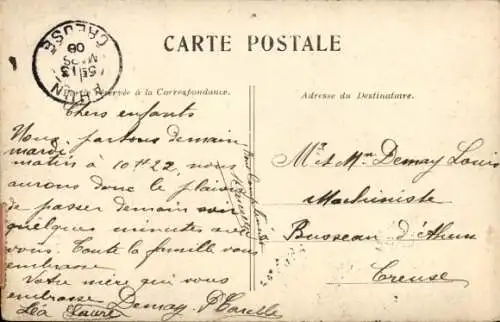 CARTE POSTALE
réservée à la Correspondance.
Adresse du Destinataire.
AHUN
CREUSE
13
MARS
08
Chers enfants
Nous partons demain
mardi
matin à 10H22, nous
aurons donc le plaisir
de passer demain
quelques minutes avec
vous. Toute la famille vous
embrasse
Votre mère qui vous
embrasse Demay
Léa Laure
Mr et Mme Demay Louis
Machiniste
Busseau d'Ahun
Creuse